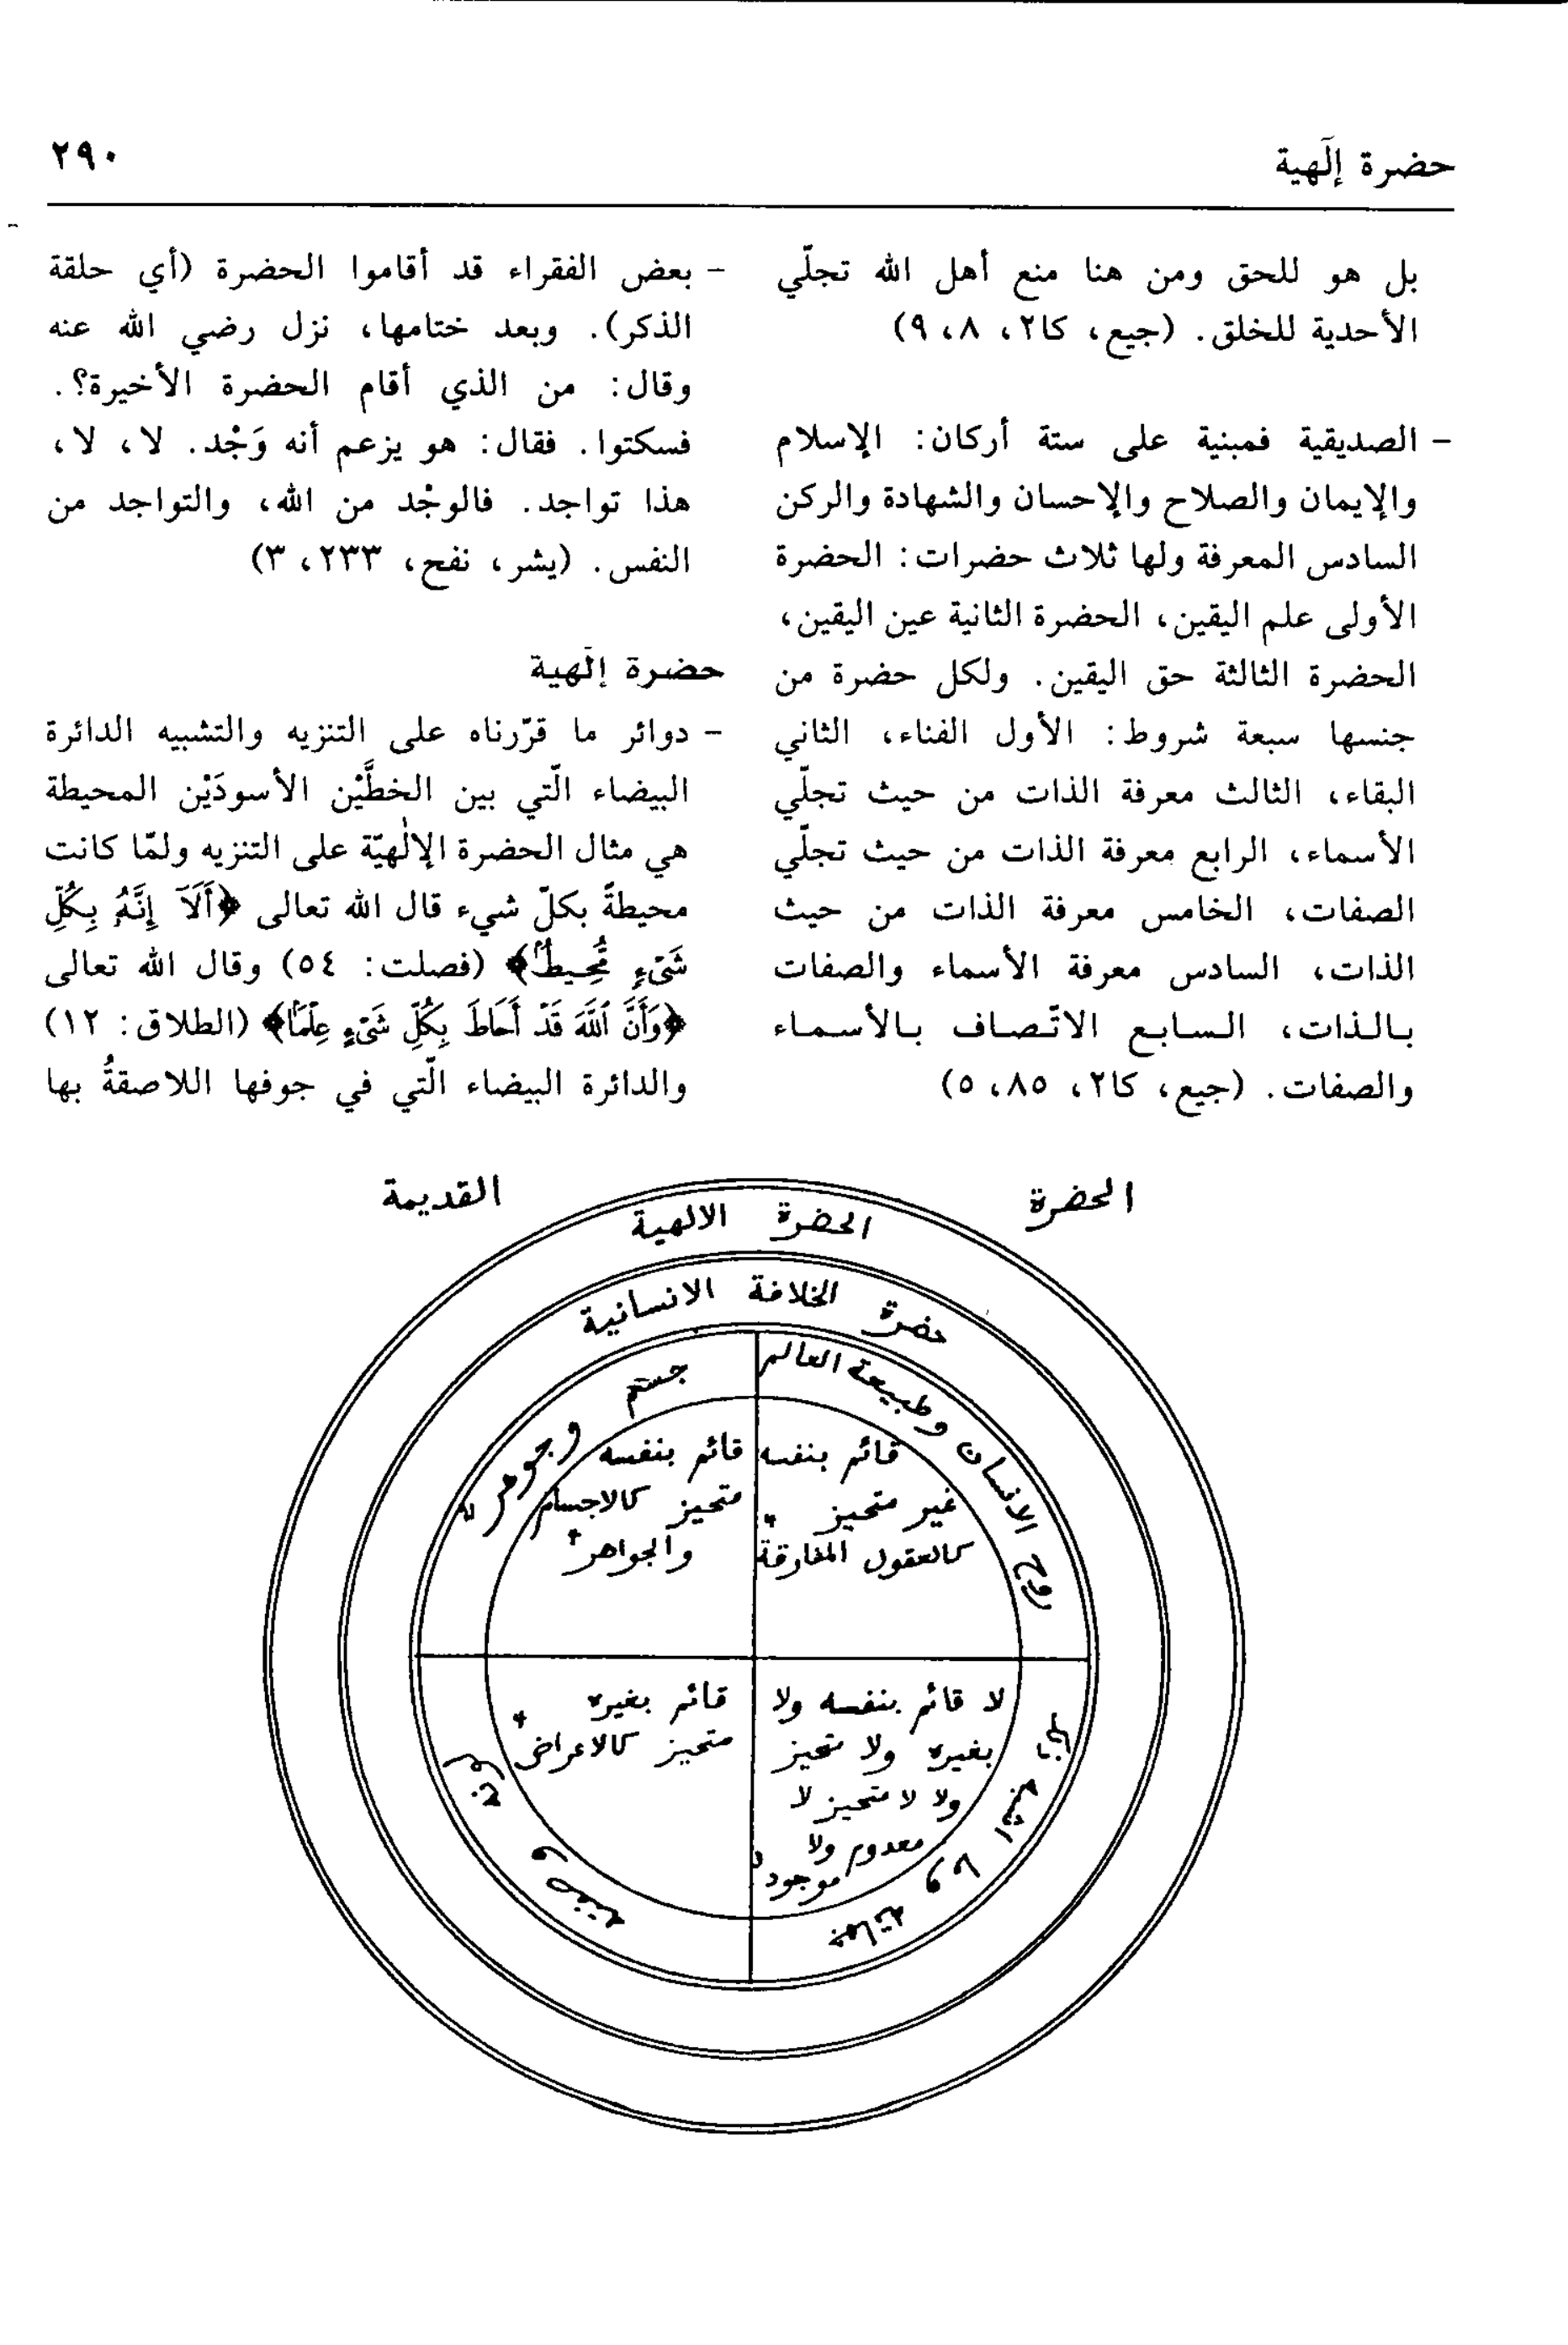 حضرة إلَهية
٢٩٠
بل هو للحق ومن هنا منع أهل الله تجلّي
الأحدية للخلق. (جيع، كا٢، ٨، ٩)
- الصديقية فمبنية على ستة أركان: الإسلام
والإيمان والصلاح والإحسان والشهادة والركن
السادس المعرفة ولها ثلاث حضرات: الحضرة
الأولى علم اليقين، الحضرة الثانية عين اليقين،
الحضرة الثالثة حق اليقين. ولكل حضرة من
جنسها سبعة شروط: الأول الفناء، الثاني
البقاء، الثالث معرفة الذات من حيث تجلّي
الأسماء، الرابع معرفة الذات من حيث تجلّي
الصفات، الخامس معرفة الذات من حيث
الذات، السادس معرفة الأسماء والصفات
بالذات، السابع الاتّصاف بالأسماء
والصفات. (جيع، كا٢، ٨٥، ٥)
- بعض الفقراء قد أقاموا الحضرة (أي حلقة
الذكر). وبعد ختامها، نزل رضي الله عنه
وقال: من الذي أقام الحضرة الأخيرة؟.
فسكتوا. فقال: هو يزعم أنه وَجْد. لا، لا،
هذا تواجد. فالوجْد من الله، والتواجد من
النفس. (يشر، نفح، ٢٣٣، ٣)
حضرة إلَهية
- دوائر ما قرّرناه على التنزيه والتشبيه الدائرة
البيضاء الّتي بين الخطَّيْن الأسودَيْن المحيطة
هي مثال الحضرة الإلٰهيّة على التنزيه ولمّا كانت
محيطةً بكلّ شيء قال الله تعالى ﴿أَلَآ إِنَّهُۥ بِكُلِّ
شَىْءٍ مُّحِيطٌۢ﴾ (فصلت: ٥٤) وقال الله تعالى
﴿وَأَنَّ ٱللَّهَ قَدْ أَحَاطَ بِكُلِّ شَىْءٍ عِلْمًۢا﴾ (الطلاق: ١٢)
والدائرة البيضاء الّتي في جوفها اللاصقةُ بها
الحضرة القديمة
الحضرة الالهية
حضرة الخلافة الانسانية
روح الانسان وطبيعة العالم
جسم وجوهر
قائم بنفسه
غير متحيز
كالعقول المفارقة
قائم بنفسه
متحيز كالاجسام
والجواهر
لا قائم بنفسه ولا
بغيره ولا متحيز
ولا لا متحيز لا
معدوم ولا
موجود
قائم بغيره
متحيز كالاعراض
وصفته